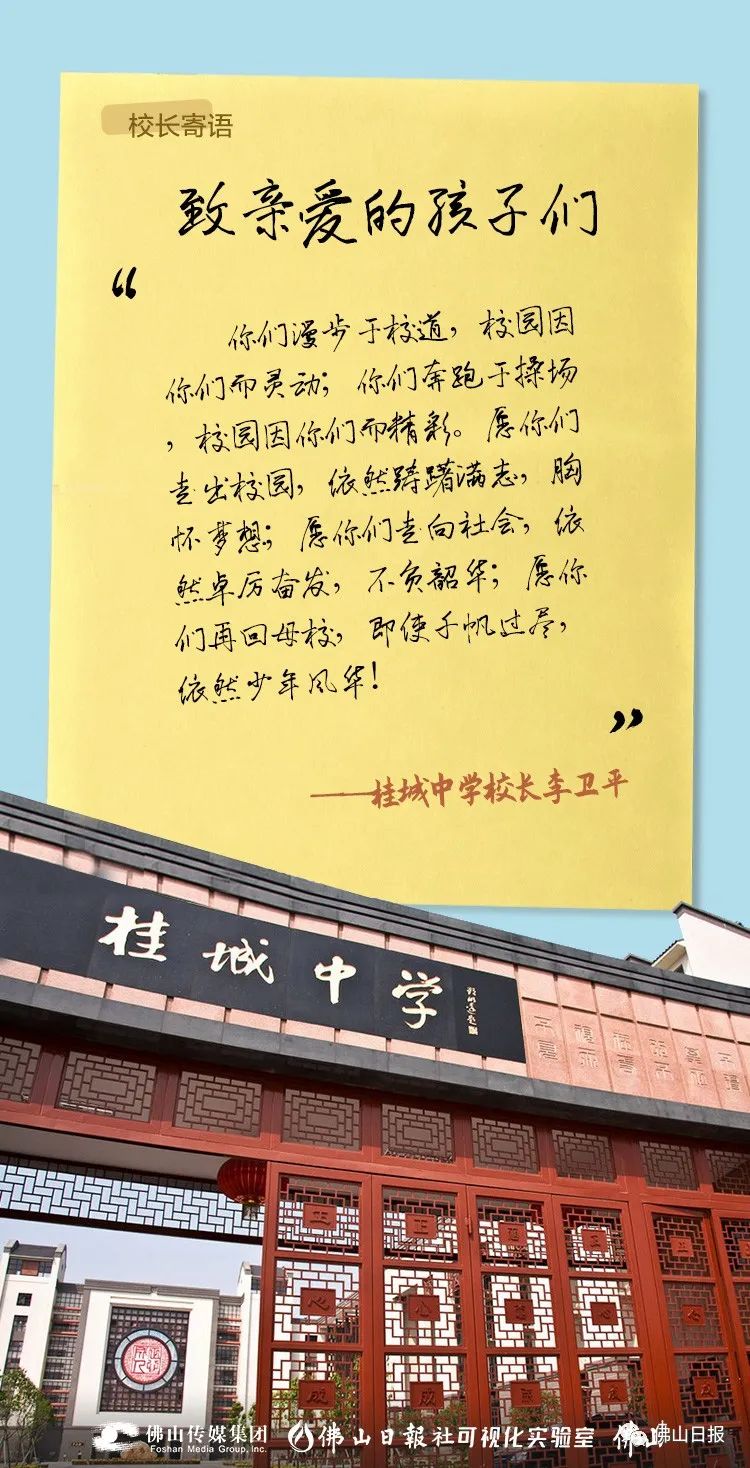 校长寄语
致亲爱的孩子们
“
你们漫步于校道，校园因
你们而灵动；你们奔跑于操场
，校园因你们而精彩。愿你们
走出校园，依然踌躇满志，胸
怀梦想；愿你们走向社会，依
然卓厉奋发，不负韶华；愿你
们再回母校，即使千帆过尽，
依然少年风华！
”
——桂城中学校长李卫平
桂城中学
正 正 正
心 心 心
成 成 成
佛山传媒集团
Foshan Media Group, Inc.
佛山日報社可视化实验室
佛山
佛山日报